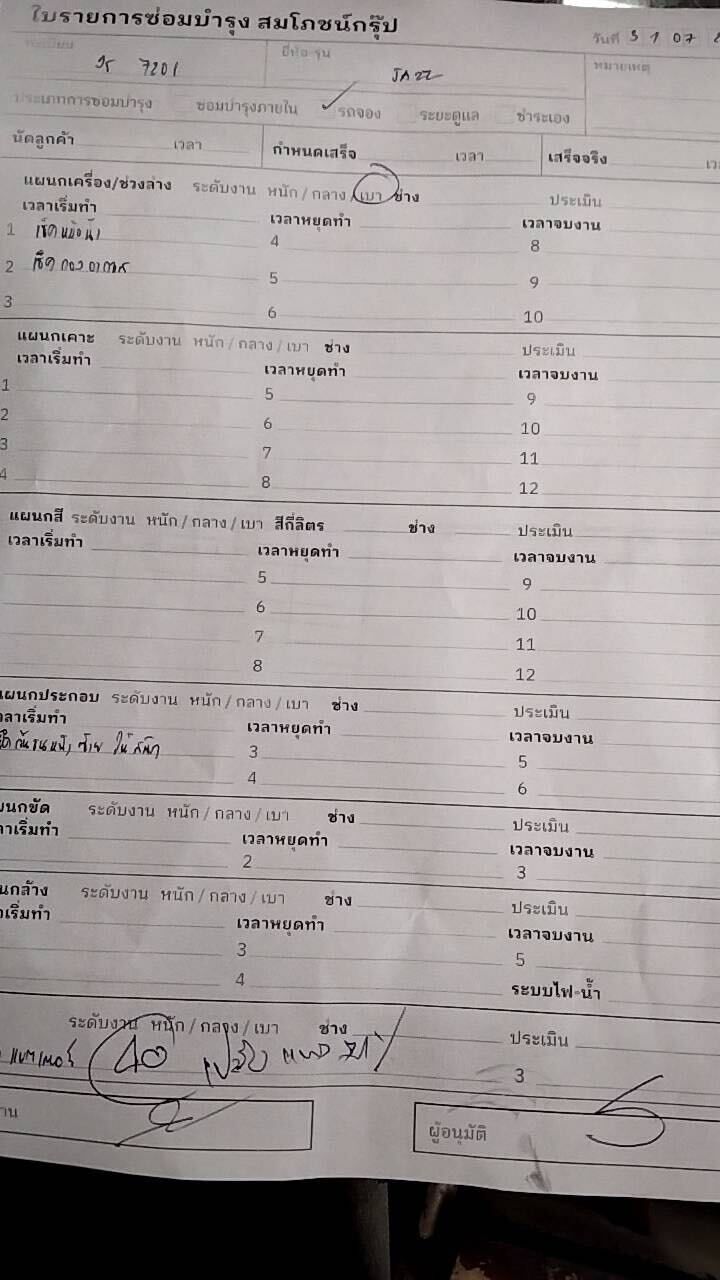 ใบรายการซ่อมบำรุง สมโภชน์กรุ๊ป
วันที่ 31 07
ทะเบียน 7201 ยี่ห้อ-รุ่น JAZZ หมายเหตุ
ประเภทการซ่อมบำรุง ซ่อมบำรุงภายใน รถจอง ระยะดูแล ชำระเอง
นัดลูกค้า เวลา กำหนดเสร็จ เวลา เสร็จจริง
แผนกเครื่อง/ช่วงล่าง ระดับงาน หนัก / กลาง / เบา ช่าง ประเมิน
เวลาเริ่มทำ เวลาหยุดทำ เวลาจบงาน
1 เช็คหม้อน้ำ 4 8
2 เช็ค 5 9
3 6 10
แผนกเคาะ ระดับงาน หนัก / กลาง / เบา ช่าง ประเมิน
เวลาเริ่มทำ เวลาหยุดทำ เวลาจบงาน
1 5 9
2 6 10
3 7 11
4 8 12
แผนกสี ระดับงาน หนัก / กลาง / เบา สีกี่ลิตร ช่าง ประเมิน
เวลาเริ่มทำ เวลาหยุดทำ เวลาจบงาน
5 9
6 10
7 11
8 12
แผนกประกอบ ระดับงาน หนัก / กลาง / เบา ช่าง ประเมิน
เวลาเริ่มทำ เวลาหยุดทำ เวลาจบงาน
3 5
4 6
แผนกขัด ระดับงาน หนัก / กลาง / เบา ช่าง ประเมิน
เวลาเริ่มทำ เวลาหยุดทำ เวลาจบงาน
2 3
แผนกล้าง ระดับงาน หนัก / กลาง / เบา ช่าง ประเมิน
เวลาเริ่มทำ เวลาหยุดทำ เวลาจบงาน
3 5
4 ระบบไฟ-น้ำ
ระดับงาน หนัก / กลาง / เบา ช่าง ประเมิน
40 3
งาน ผู้อนุมัติ